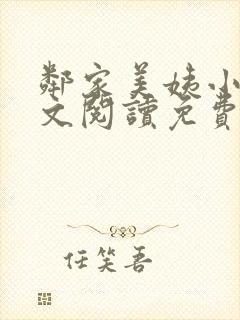 鄰家美姨小
文閱讀免費
任笑吾